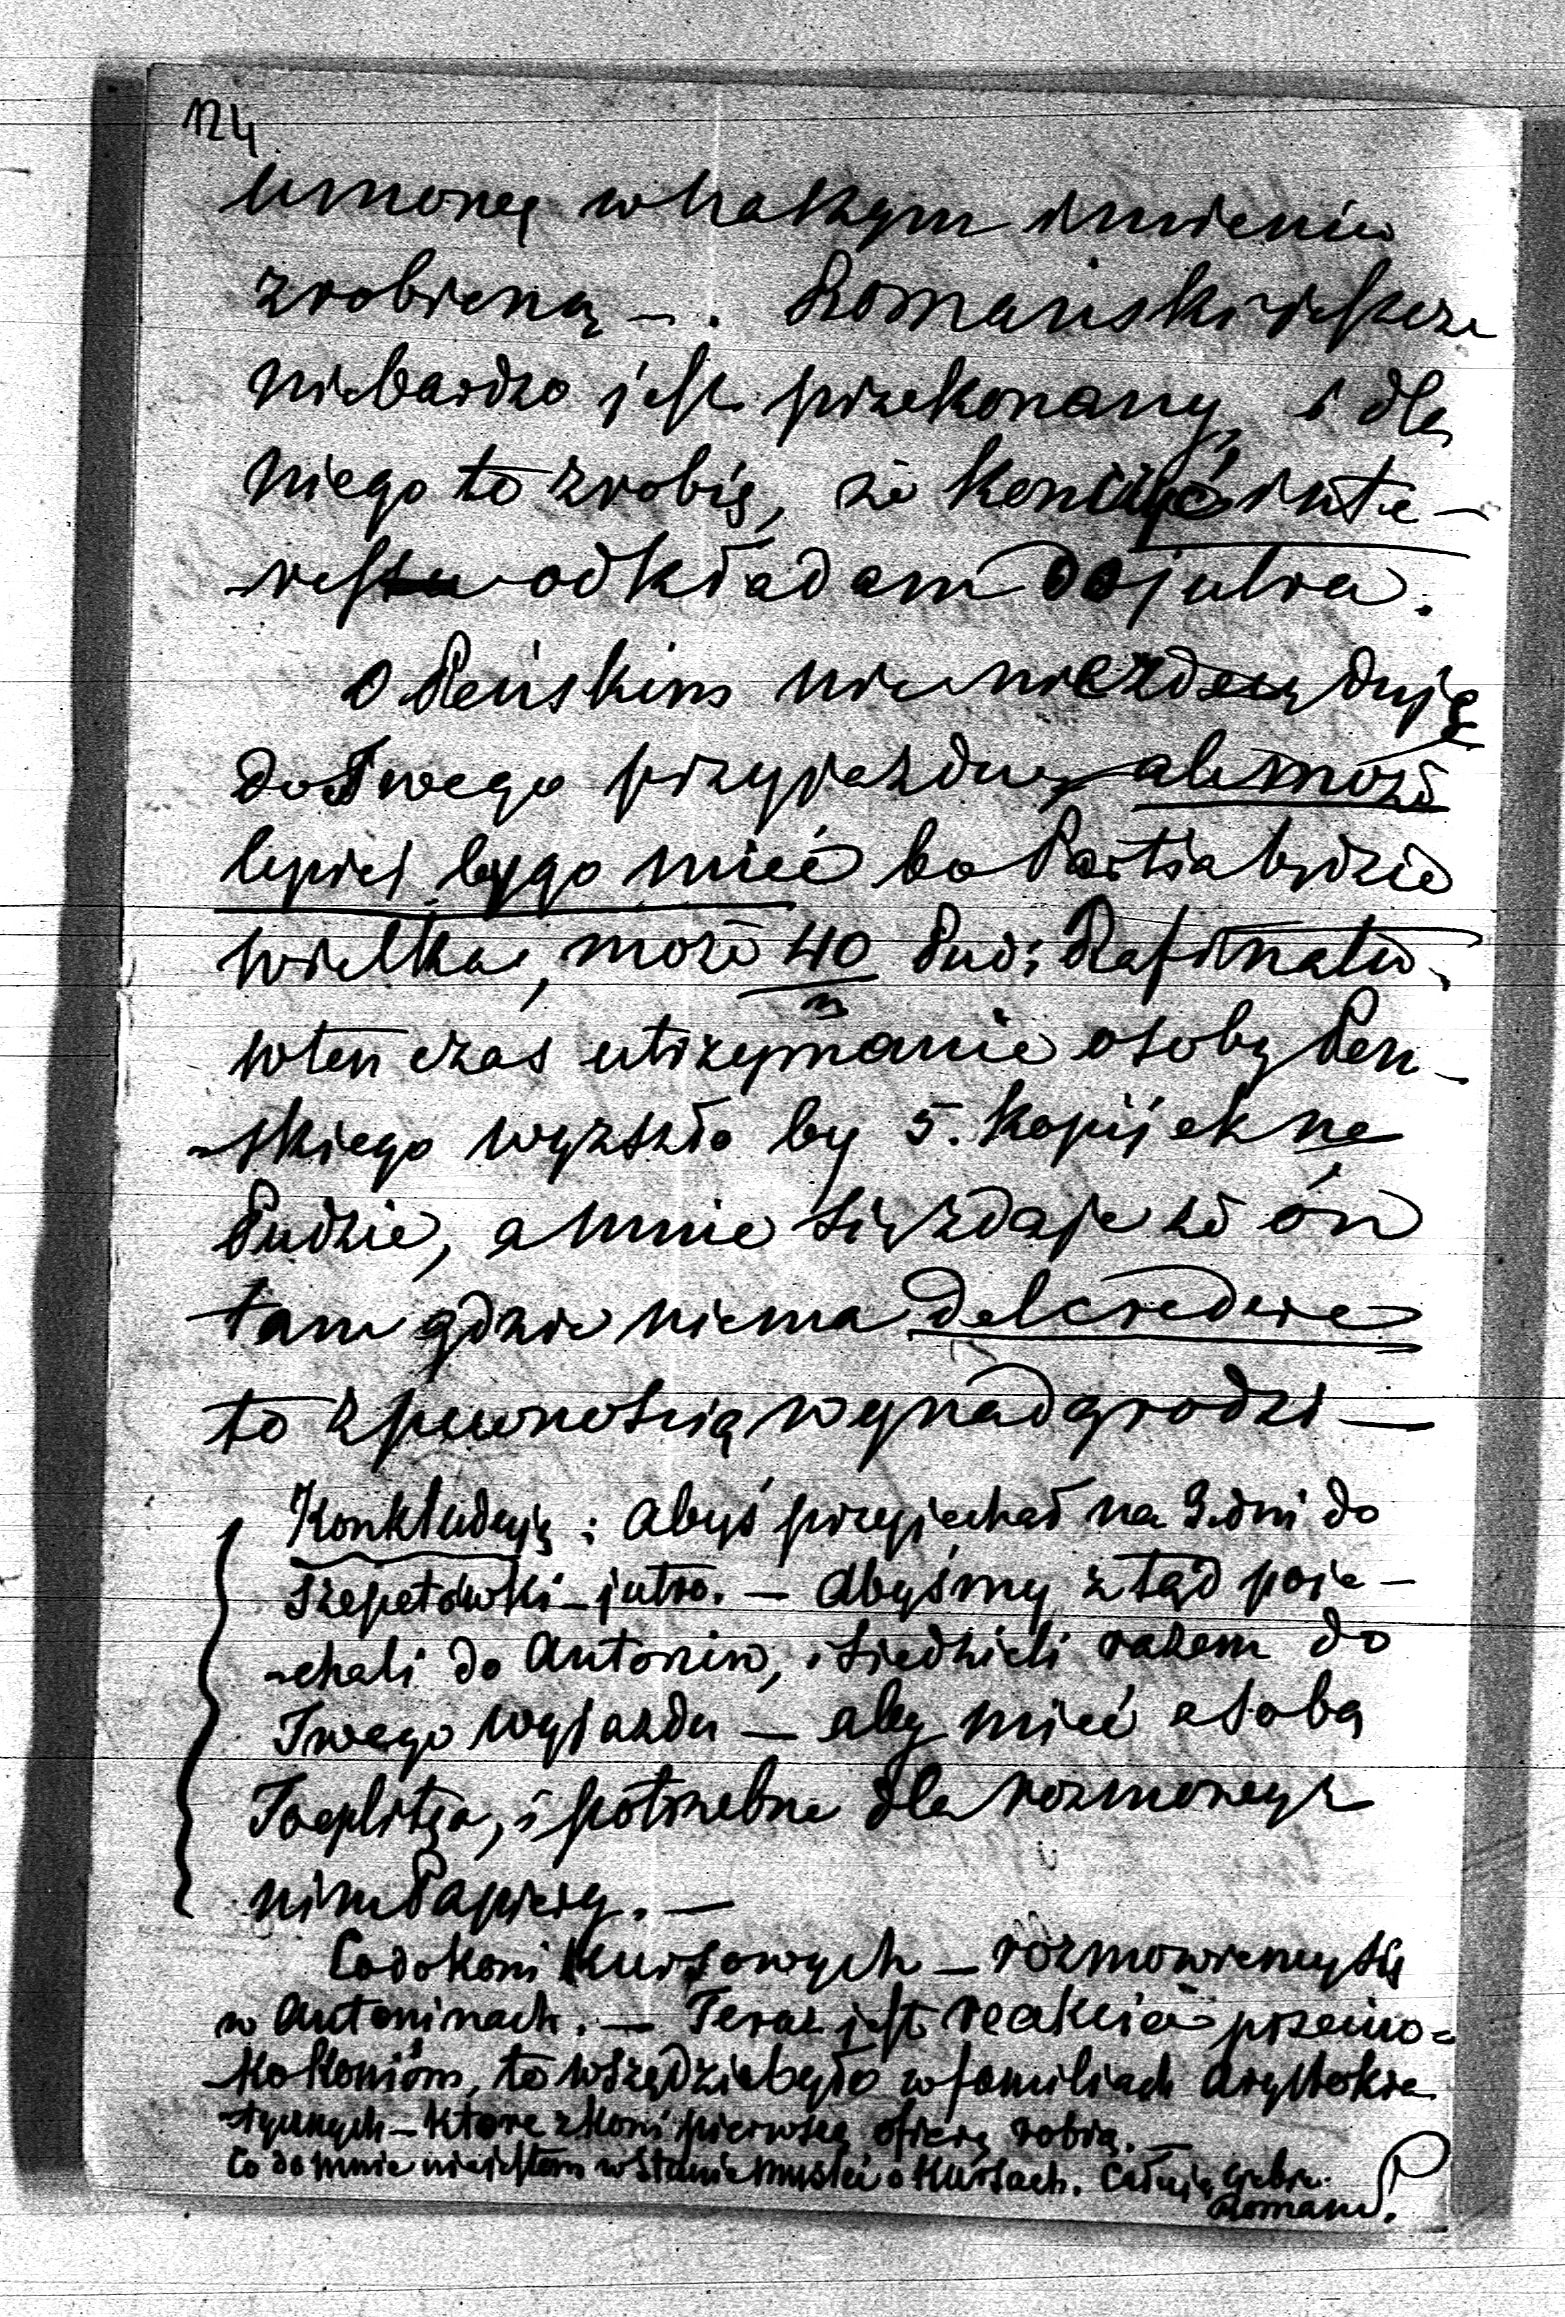 124
umowę w Naszym imieniu
zrobioną —. Romański jeszcze
niebardzo jest przekonany, i dla
niego to zrobię, że kończyć inte-
-resu odkładam do jutra.
O Peńskim nic nie zdecyduję
do Twego przyjazdu, ale może
lepiej by go mieć bo Partia będzie
wielka, może 40 Pud: Rafinatu.
w ten czas utrzymanie osoby Pen-
-skiego wyszło by 5. kopijek na
Pudzie, a mnie się zdaje że ón
tam gdzie niema delcredere
to z pewnością wynadgrodzi —
Konkluduję: abyś przyjechał na 3. dni do
Szepetówki — jutro. — abyśmy ztąd poje-
-chali do Antonin, i siedzieli razem do
Twego wyjazdu — aby mieć z sobą
Toeplitza, i potrzebne dla rozmowy z
nim Papiery. —
Co do koni Kursowych — rozmowiemy się
w Antoninach. — Teraz jest reakcia przeciw-
-ko koniom, to wszędzie było w familiach arysto kra
-tycznych — które z koni pierwszą ofiarę robią. —
Co do mnie nie jestem w stanie musleć o Kursach. Całuję Ciebie.
Roman P.